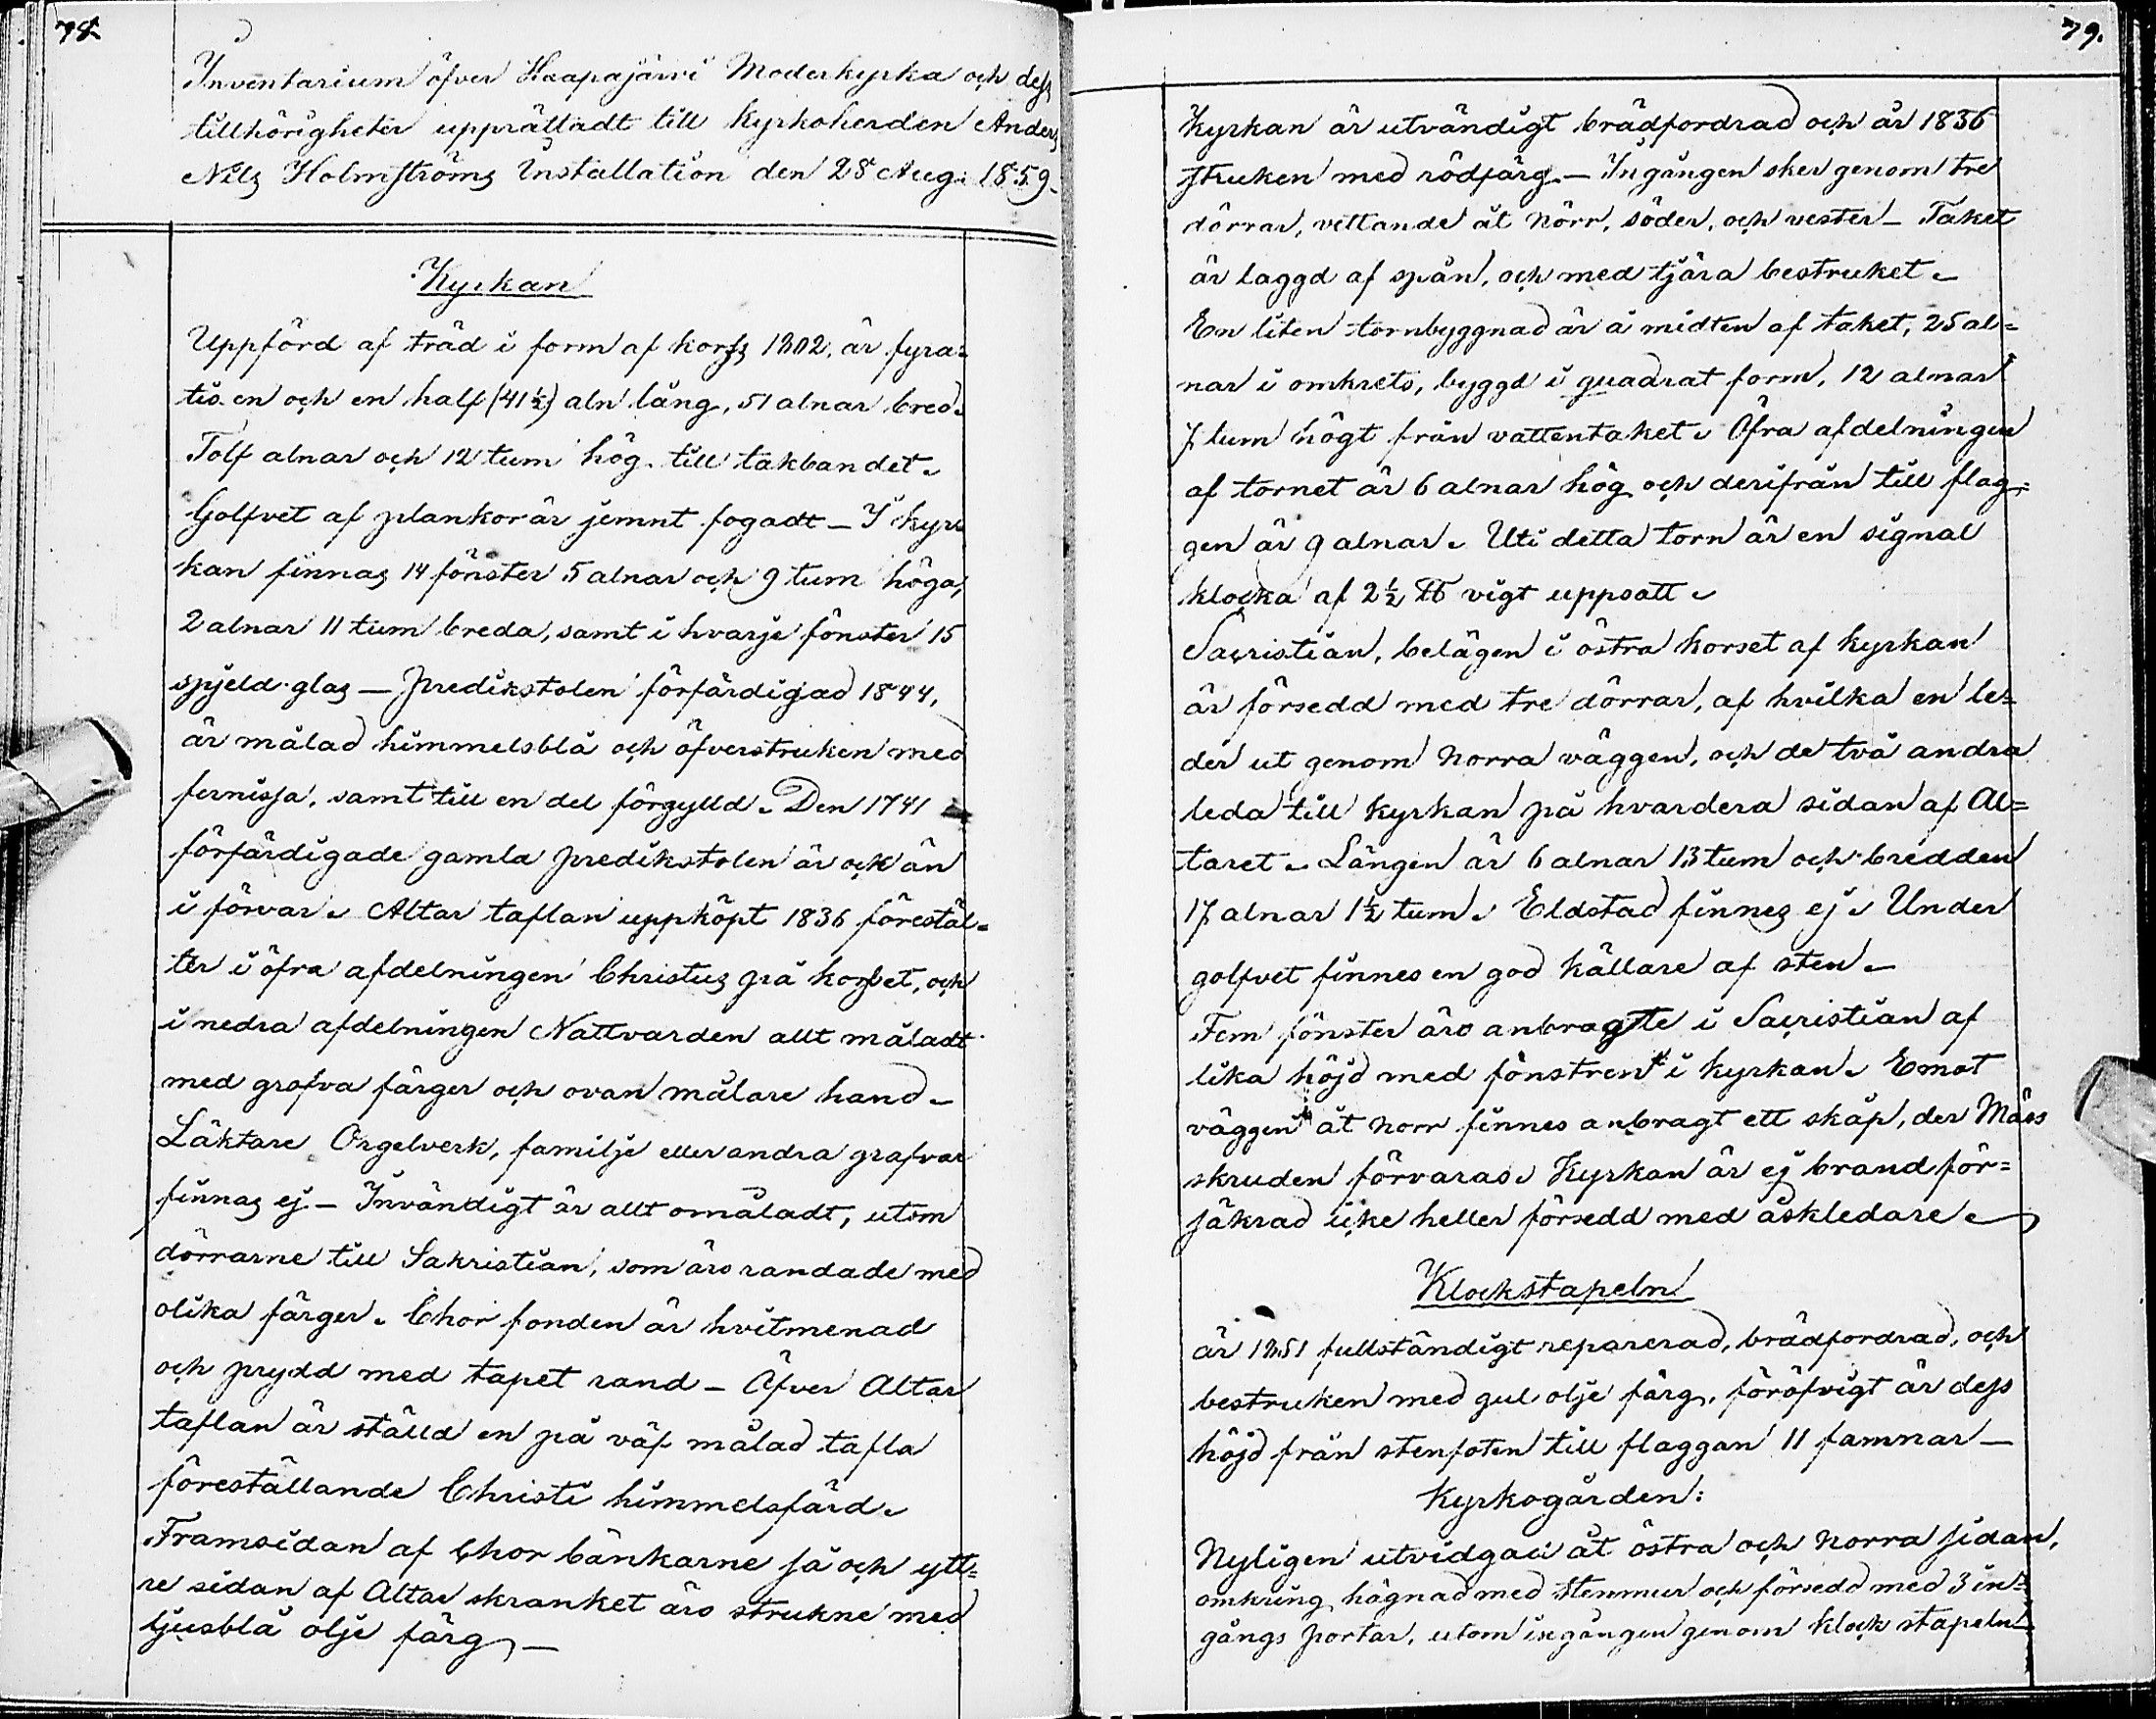 78.
Inventarium öfver Haapajärvi Moderkyrka och dess
tillhörigheter upprättadt till Kyrkoherden Anders
Nils Holmströms Installation den 28 Aug. 1859.
Kyrkan
Uppförd af träd i form af korss 1802, är fyra-
tio en och en half (41½) aln lång, 51 alnar bred.
Tolf alnar och 12 tum hög till takbandet.
Golfvet af plankor är jemnt fogadt – I kyr-
kan finnas 14 fönster 5 alnar och 9 tum höga,
2 alnar 11 tum breda, samt i hvarje fönster 15
spjeld glas — Predikstolen förfärdigad 1844,
är målad himmelsblå och öfverstruken med
fernissa, samt till en del förgylld. Den 1741
förfärdigade gamla predikstolen är ock än
i förvar. Altar taflan uppköpt 1836 förestäl-
ter i öfra afdelningen Christus på korset, och
i nedra afdelningen Nattvarden allt måladt
med grofva färger och ovan målare hand.
Läktare Orgelverk, familje eller andra grafvar
finnas ej – Invändigt är allt omåladt, utom
dörrarne till Sakristian, som äro randade med
olika färger. Chor fonden är hvitmenad
och prydd med tapet rand – Öfver Altar
taflan är ställd en på väf målad tafla
föreställande Christi himmelsfärd.
Framsidan af Chor bänkarne så och ytt-
re sidan af Altar skranket äro strukne med
ljusblå olje färg. —
79.
Kyrkan är utvändigt brädfordrad och år 1836
struken med rödfärg. — Ingången sker genom tre
dörrar, vettande åt norr, söder, och vester – Taket
är laggd af spån, och med tjära bestruket.
En liten tornbyggnad är å midten af taket, 25 al-
nar i omkrets, byggd i quadrat form, 12 alnar
7 tum högt från vattentaket. Öfra afdelningen
af tornet är 6 alnar hög och derifrån till flag-
gen är 9 alnar. Uti detta torn är en signal
klocka af 2½ ℔ vigt uppsatt.
Sacristian, belägen i östra korset af kyrkan
är försedd med tre dörrar, af hvilka en le-
der ut genom norra väggen, och de två andra
leda till kyrkan på hvardera sidan af Al-
taret. Längen är 6 alnar 13 tum och bredden
17 alnar 1½ tum. Eldstad finnes ej. Under
golfvet finnes en god källare af sten.
Fem fönster äro anbragte i Sacristian af
lika höjd med fönstren i kyrkan. Emot
väggen åt norr finnes anbragt ett skåp, der Mäss
skruden förvaras. Kyrkan är ej brandför-
säkrad icke heller försedd med åskledare.
Klockstapeln
är 1851 fullständigt reparerad, brädfordrad, och
bestruken med gul olje färg, föröfvigt är dess
höjd från stenfoten till flaggan 11 famnar —
Kyrkogården:
Nyligen utvidgad åt östra och norra sidan,
omkring hägnad med stenmur och försedd med 3 in-
gångs portar, utom ingången genom klock stapeln